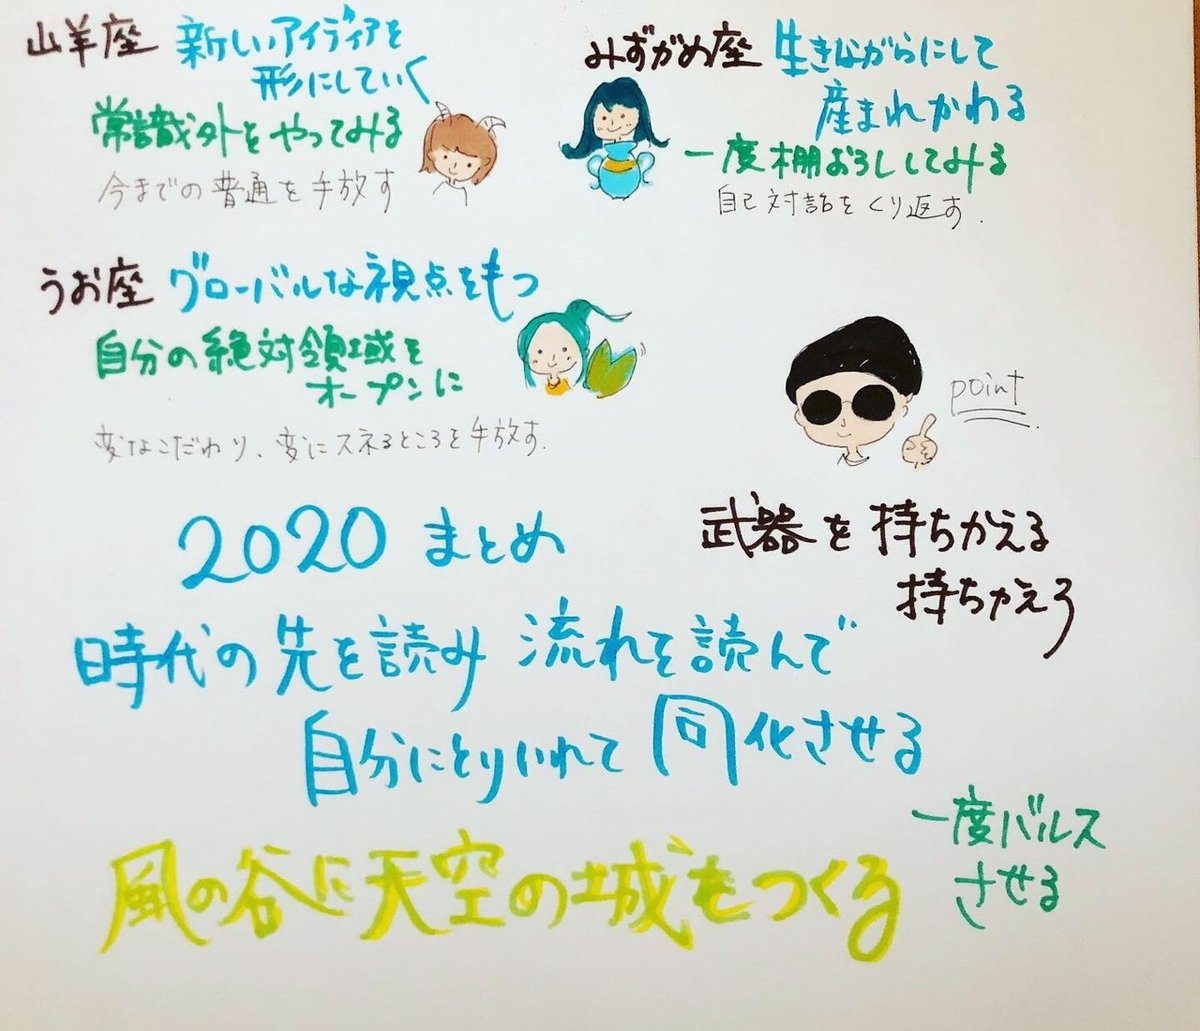 山羊座 新しいアイディアを
形にしていく
常識外をやってみる
今までの普通を手放す
みずがめ座 生きながらにして
産まれかわる
一度棚おろししてみる
自己対話をくり返す.
うお座 グローバルな視点をもつ
自分の絶対領域を
オープンに
変なこだわり、変にスネるところを手放す.
point
武器を持ちかえる
持ちかえろ
2020 まとめ
時代の先を読み 流れを読んで
自分にとりいれて 同化させる
一度バルス
させる
風の谷に天空の城をつくる